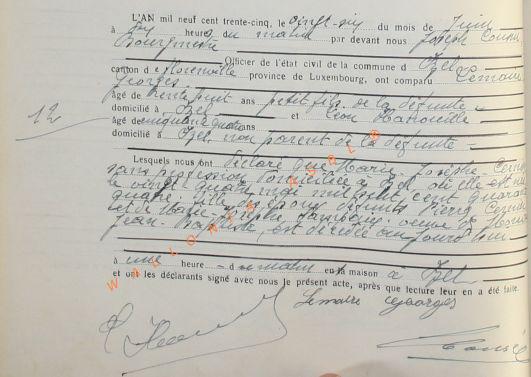 L'AN mil neuf cent trente-cinq, le vingt-six du mois de Juin
à dix heures du matin par devant nous Joseph
Bourgmestre
Officier de l'état civil de la commune d'Izel
canton de Florenville province de Luxembourg, ont comparu Lemaire
Georges
âgé de trente huit ans petit fils de la défunte
domicilié à Izel et Léon
12
âgé de cinquante ans
domicilié à Izel, non parent de la défunte
Lesquels nous ont déclaré que Marie Josèphe
sans profession domiciliée à Izel où elle est née
le vingt quatre mai mil huit cent quarante
quatre, fille des époux défunts Pierre
et de Marie Josèphe veuve de
Jean Baptiste, est décédée aujourd'hui
à une heure du matin en sa maison à Izel
et ont les déclarants signé avec nous le présent acte, après que lecture leur en a été faite.
Lemaire Georges
WALLONIA ASBL ©